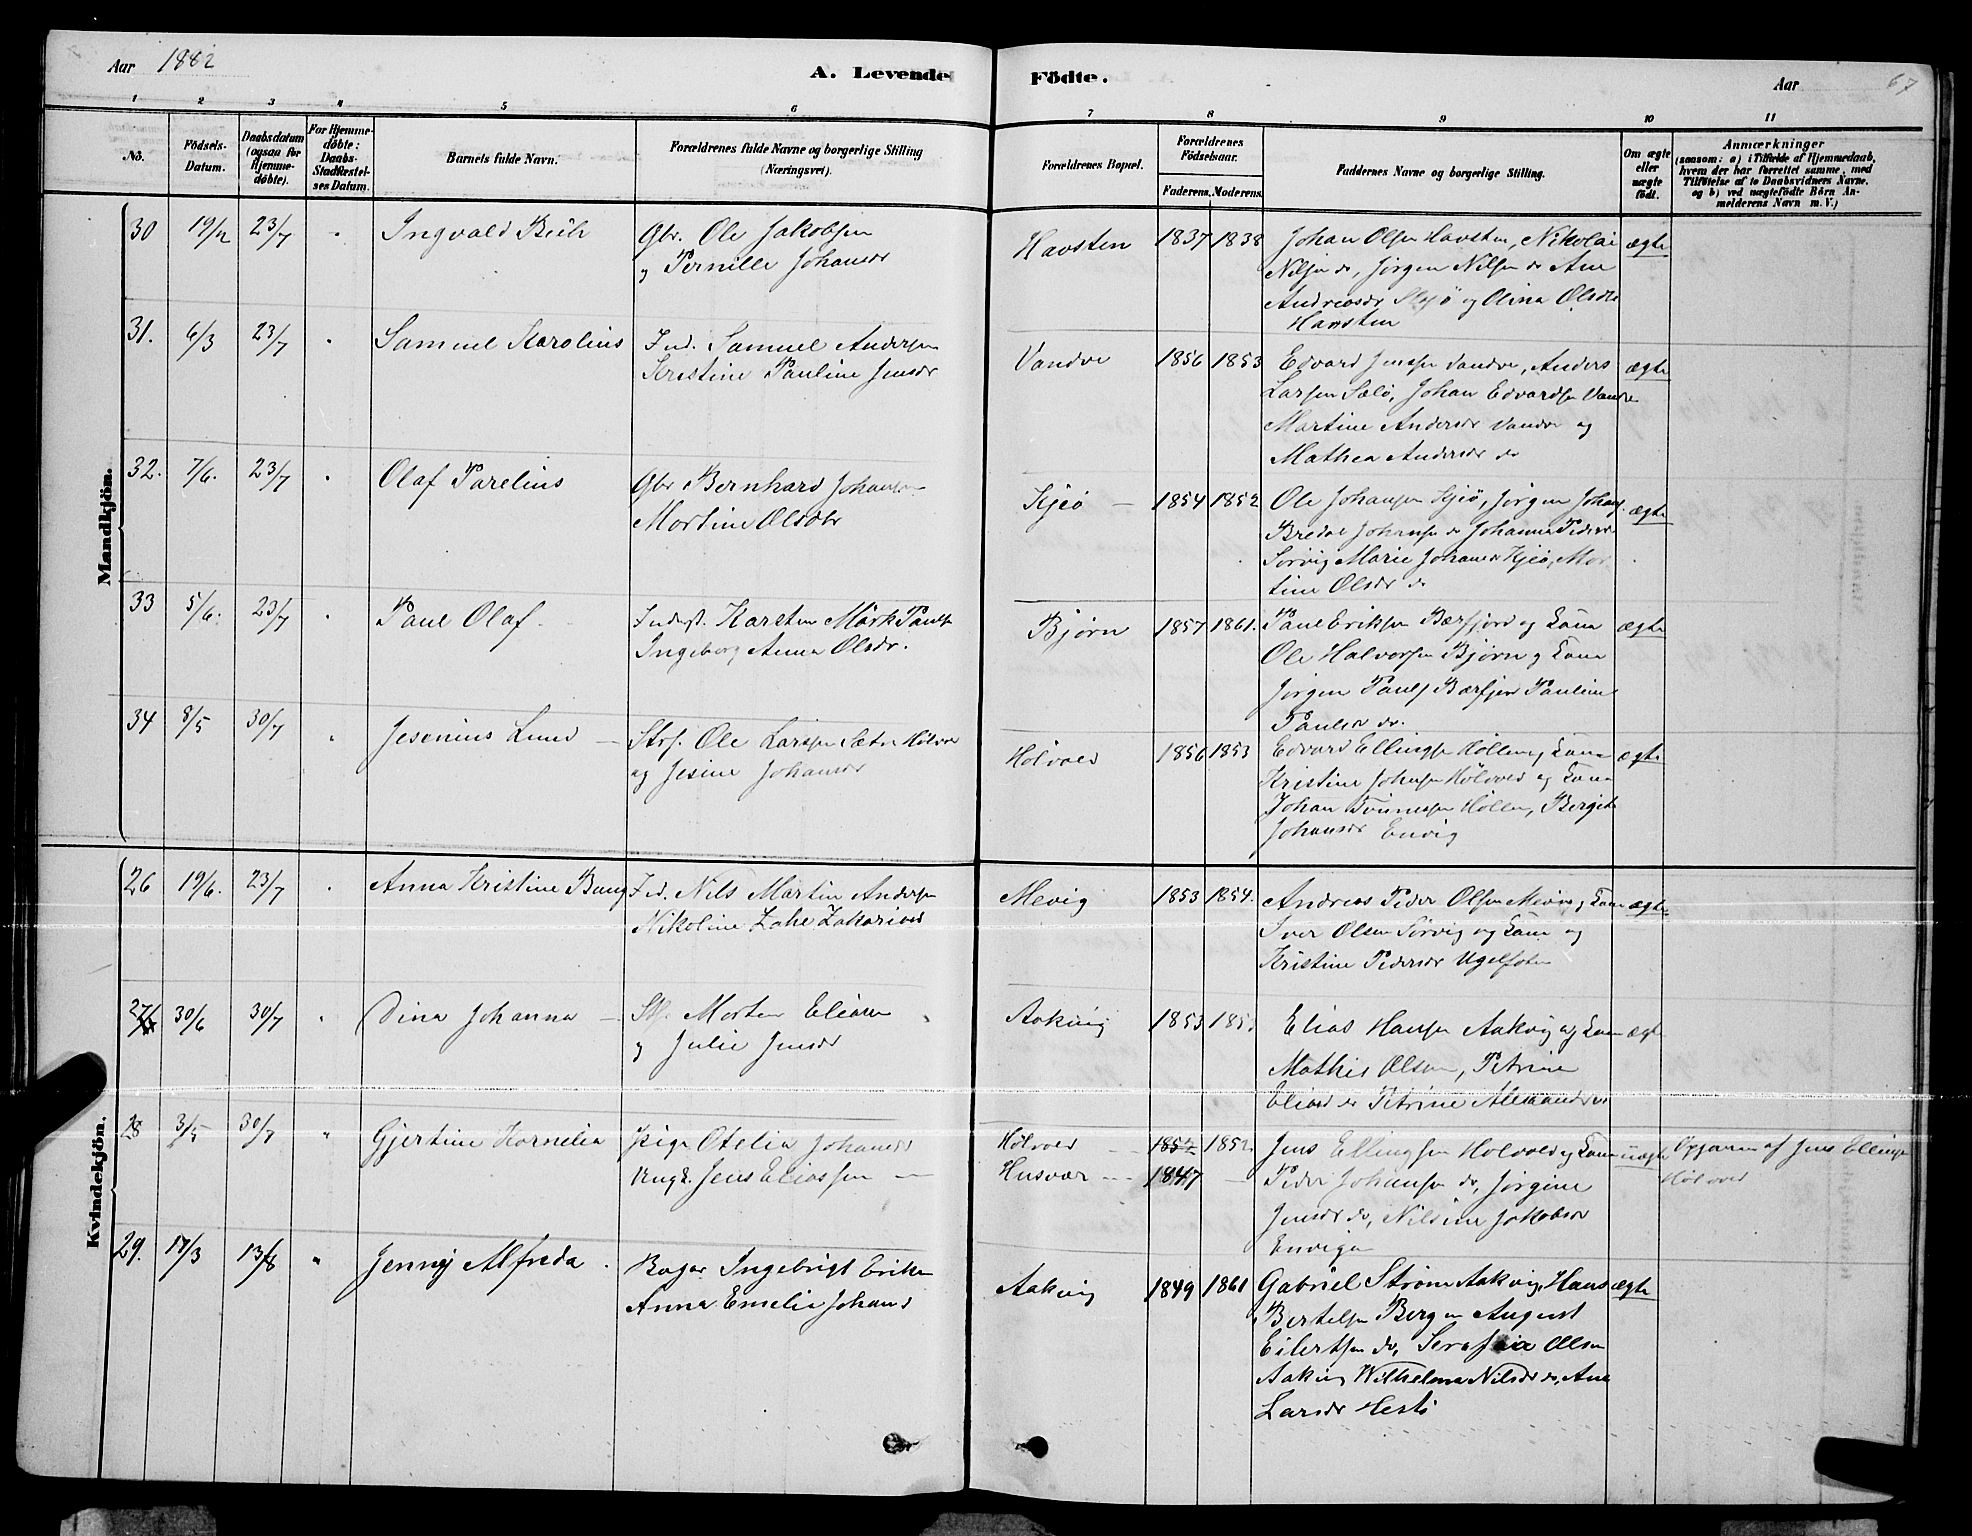 Aar 1882
A. Levende Födte.
Aar 67
1 2 3 4 5 6 7 8 9 10 11
No.
Födsels-Datum.
Daabsdatum (ogsaa for Hjemme-døbte).
For Hjemme-døbte: Daabs-Stadfæstel-ses Datum.
Barnets fulde Navn.
Forældrenes fulde Navne og borgerlige Stilling (Næringsvei).
Forældrenes Bopæl.
Forældrenes Födselsaar.
Faderens. Moderens.
Faddernes Navne og borgerlige Stilling.
Om ægte eller uægte født.
Anmærkninger
(saasom: a) i Tilfælde af Hjemmedaab, hvem der har forrettet samme, med Tilføielse af to Daabsvidners Navne, og b) ved uægtefødte Börn An-melderens Navn m. V.)
Mandkjön.
30 19/2 23/7 " Ingvald
Gbr. Ole Jakobsen
og Pernille Johansdr
Havsten 1837 1838
Johan Olsen Havsten, Nikolai
Nilsen do, Jørgen Nilsen do Ane
Andreasdr og Olina Olsdtr
Havsten
ægte
31. 6/3 23/7 " Samuel Karolius
Ind. Samuel Andersen
Kristine Pauline Jensdr
Vandve 1856 1853
Edvard Jenssen Vandve, Anders
Larsen Sælø, Johan Edvardsen Vandve
Martine Andersdr Vandve og
Mathea Andersdr do
ægte
32. 7/6. 23/7 " Olaf Parelius
Gbr Bernhard Johansen
Martine Olsdtr
Kjeø 1854 1852
Ole Johansen Kjeø, Jørgen Johans
Bredal Johansen do Johanna Pedersdr
Sørvig Marie Johansdr Kjeø, Mar
tine Olsdr do
ægte
33 5/6. 23/7 " Paul Olaf
Inderst. Karsten Mørk Pauls
Ingeborg Anna Olsdr.
Bjørn 1857 1861.
Paul Eriksen Bærfjord og Kone
Ole Halvorsen Bjørn og Kone
Jørgen Pauls Bærfjord Pauline
Paulsdr do.
ægte
34 8/5 30/7 " Jesenius Lund
Strf. Ole Larssen Sætre
og Jesine Johansdr
Holvoed 1856 1853
Edvard Ellingsen Høllen og Kone
Kristine Johnsen Holvoed og Kone
Johan Tønnesen Høllen, Bergit
Johansdr Envig
ægte
Kvindekjön.
26 19/6. 23/7 " Anna Kristine Bang
Ind. Nils Martin Andersen
Nikoline Lahe Zakariasd
Mevig 1853 1854.
Andreas Peder Olsen Mevig og Kone
Iver Olsen Sørvig og Kone og
Kristine Pedersdr Ugelfoten
ægte
27 30/6 30/7 " Dina Johanna
Morten Eliasen
og Julie Jensdr
Aakvig 1853
Elias Hansen Aakvig og Kone
Mathis Olsen, Petrine
Eliasd do Petrine Alexandersd
ægte
28 3/5 30/7 " Gjertine Kornelia
Pige Otelia Johansdr
Ungk. Jens Eliassen
Holvoed 1852
Husvær 1847
Jens Ellingsen Holvoed og Kone
Peder Johansen do, Jørgine
Jensdr do, Nilsine Jakobsdr
Envigen
uægte
Opgaven af Jens Ellingsen
Holvoed
29. 17/3 13/8 " Jenny Alfrida
Bager Ingebrigt Eriksen
Anna Emelie Johansd
Aakvig 1849 1861
Gabriel Strøm Aakvig, Hans
Bertelsen Bergen August
Eilertsen do, Serafia Olsen
Aakvig Wilhelma Nilsdr do, Ane
Larsdr Hestø
ægte